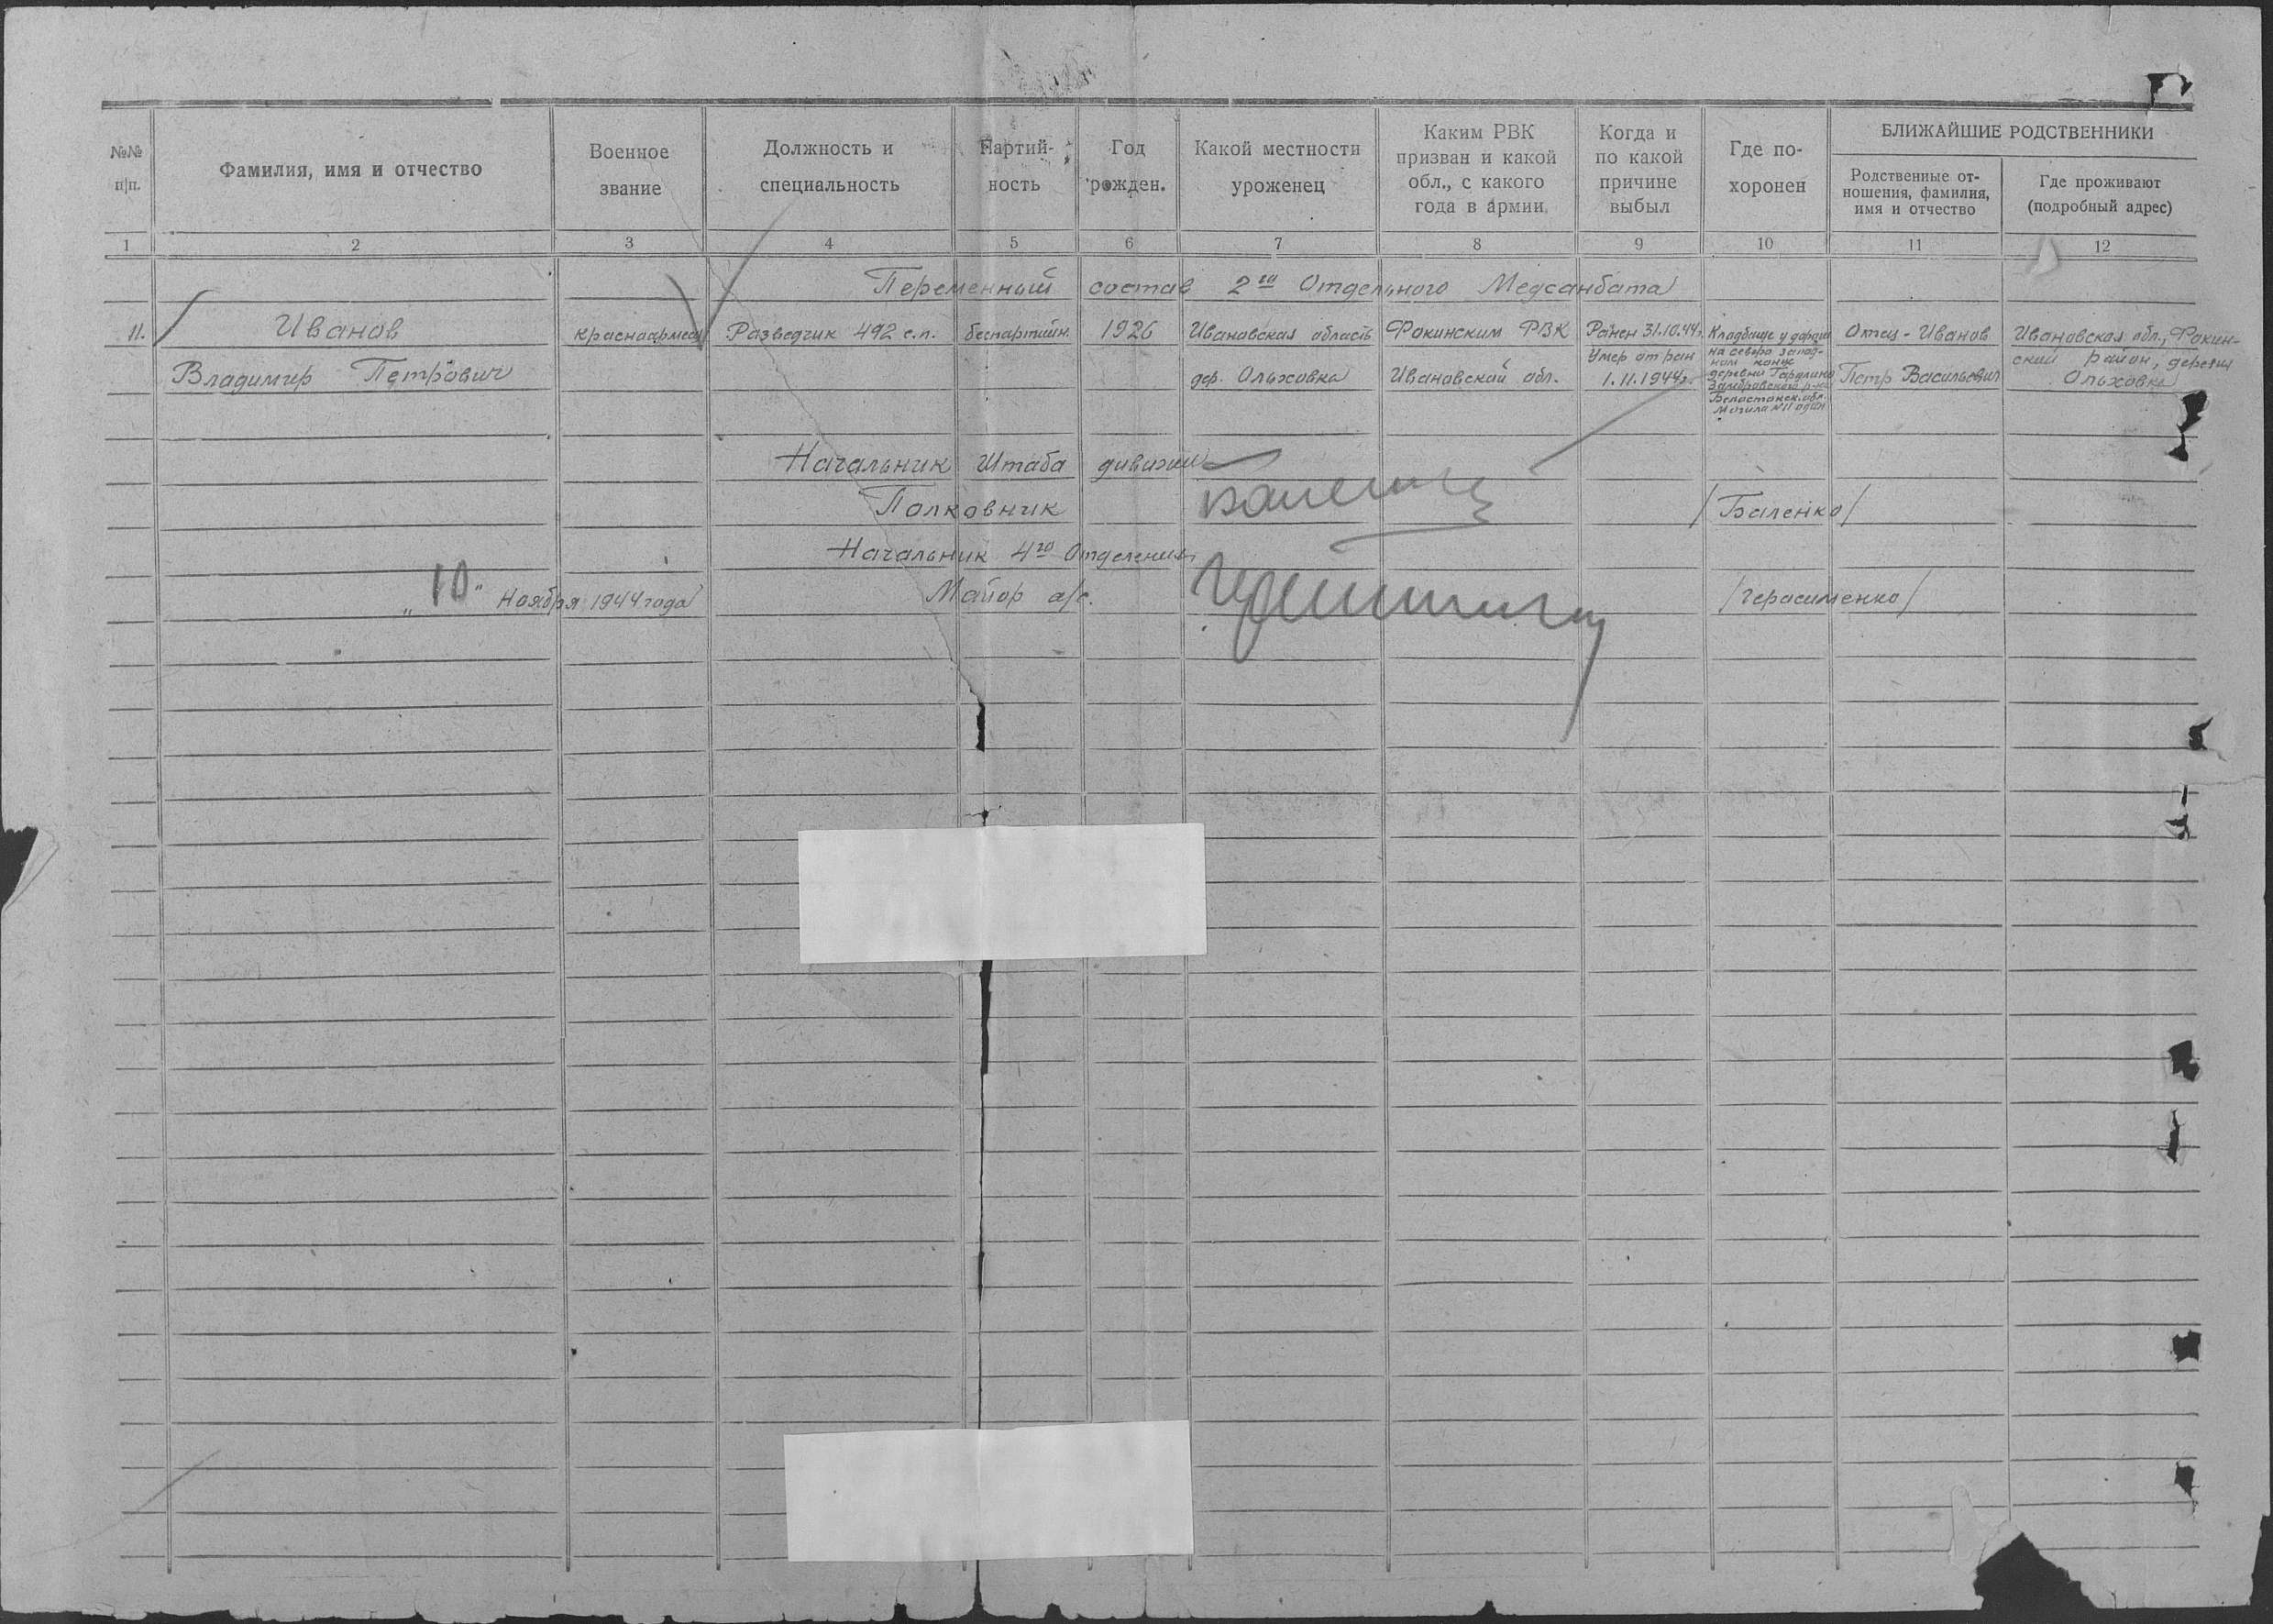 №№ п/п.
Фамилия, имя и отчество
Военное звание
Должность и специальность
Партий-
ность
Год рожден.
Какой местности уроженец
Каким РВК
призван и какой
обл., с какого
года в армии
Когда и
по какой
причине
выбыл
Где по-
хоронен
БЛИЖАЙШИЕ РОДСТВЕННИКИ
Родственные от-
ношения, фамилия,
имя и отчество
Где проживают
(подробный адрес)
1 2 3 4 5 6 7 8 9 10 11 12
Переменный состав 2го Отдельного Медсанбата
11.
Иванов
Владимир Петрович
красноармеец
Разведчик 492 с.п.
беспартийн.
1926
Ивановская область
дер. Ольховка
Фокинским РВК
Ивановской обл.
Ранен 31.10.44г.
Умер от ран
1.11.1944г.
Кладбище у дороги
на северо запад-
ном конце
деревни
Замбровского р-на
Белостокск. обл.
Могила №11 один
Отец - Иванов
Петр Васильевич
Ивановская обл., Фокин-
ский район, деревня
Ольховка
Начальник Штаба дивизии
Полковник /Баленко/
Начальник 4го Отделения
„10" Ноября 1944 года Майор а/с. /Герасименко/